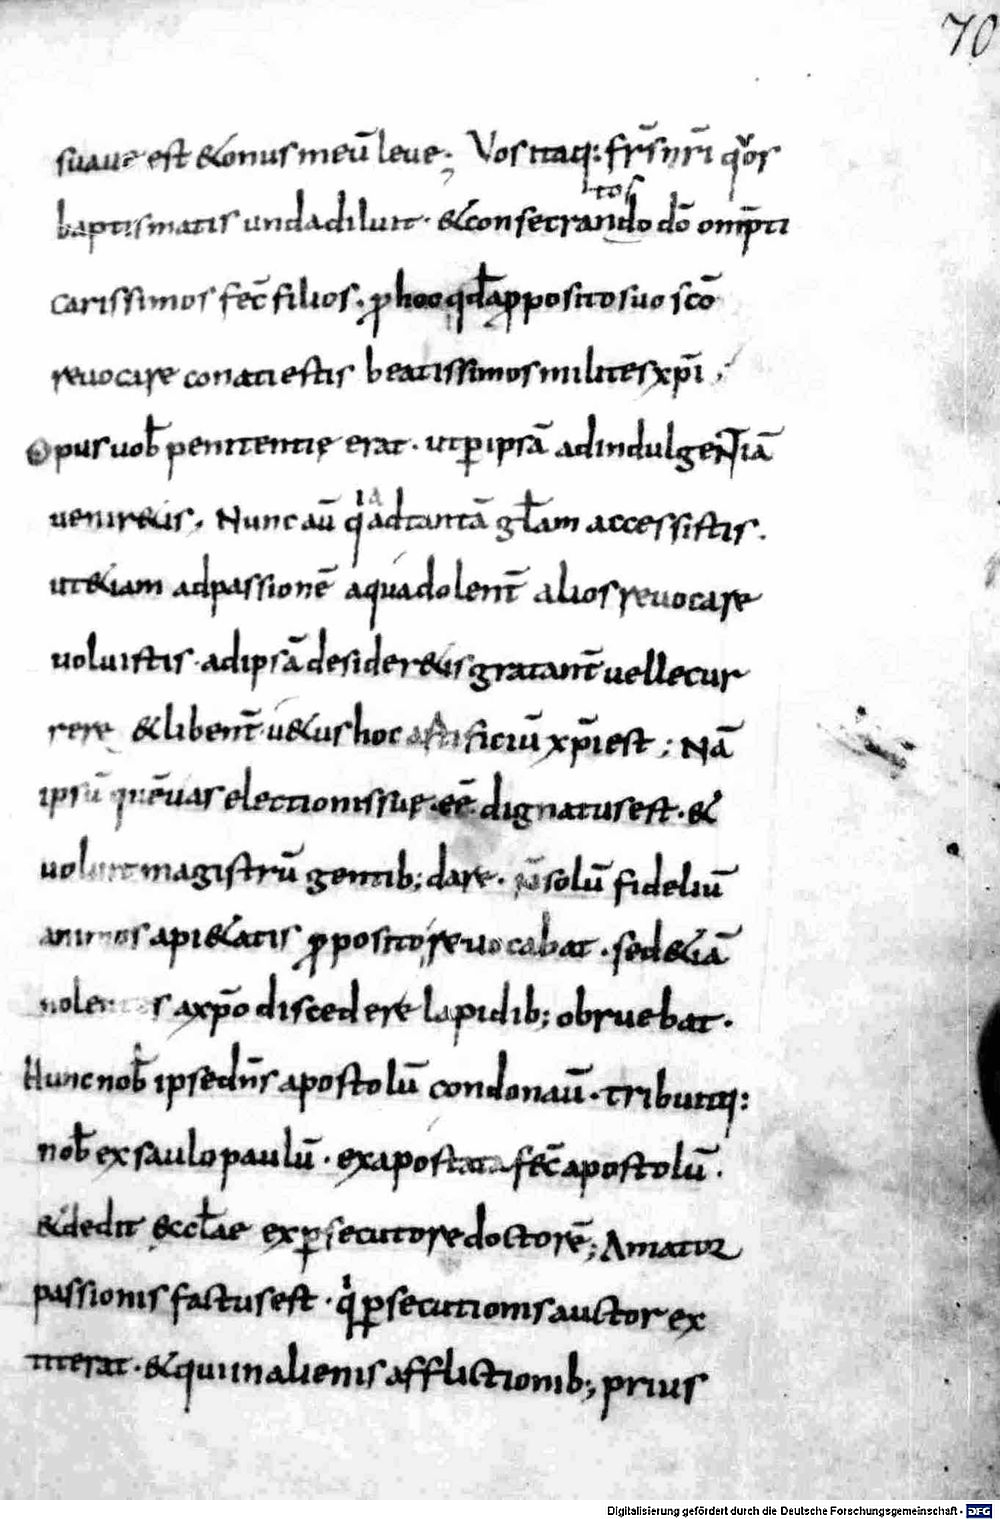 70
suaue est & onus meū leue; Vos itaq: fr̄s nr̄i quos
tos
baptismatis unda diluit · & consecrando dō omp̄ti
carissimos fec̄ filios · ꝓ hoc qd̄ a ꝓposito suo scō
reuocare conati estis beatissimos milites xp̄i ;
Opus uob̄ penitentię erat · ut ꝑ ipsā ad indulgeNTiā
ueniretis · Nunc aū q ia ad tantā gl̄am accessistis ·
ut &iam ad passionē a qua dolent̄ alios reuocare
uoluistis · ad ipsā desider&is gratant̄ uelle cur
rere & libent̄ u&us hoc artificiū xp̄i est ; Nā
ipsū quē uas electionis suę eē dignatus est · &
uoluit magistrū gentib; dare · solū fideliū
animos a pi&atis ꝓposito reuocabat · sed &iā
nolentes a xp̄o discedere lapidib; obruebat ·
Hunc nob̄ ipse dn̄s apostolū condonauī · tribuitq:
nob̄ ex saulo paulū · ex apostata fec̄ apostolū ·
& dedit ęccl̄ae ex ꝑsecutore doctorē ; Amator
passionis factus est · qi ꝑsecutionis auctor ex
titerat · & qui in alienis afflictionib; prius
Digitalisierung gefördert durch die Deutsche Forschungsgemeinschaft - DFG